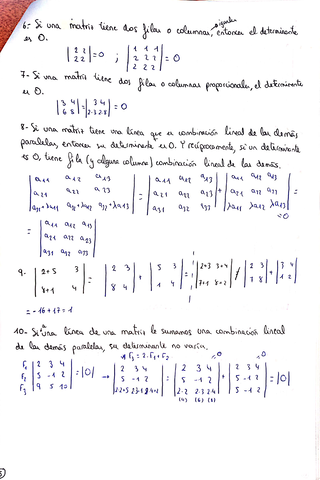 6.- Si una matriz tiene dos filas o columnas, iguales entonces el determinante
es 0.
|2 2| = 0 ; |1 1 1| = 0
|2 2| |2 2 2|
|2 2 2|
7.- Si una matriz tiene dos filas o columnas proporcionales, el determinante
es 0.
|3 4| = |3 4| = 0
|6 8| |2·3 2·4|
8.- Si una matriz tiene una línea que es combinación lineal de las demás
paralelas, entonces su determinante es 0. Y recíprocamente, si un determinante
es 0, tiene fila (y alguna columna) combinación lineal de las demás.
|a11 a12 a13| = |a11 a12 a13| + |a11 a12 a13| =
|a21 a22 a23| |a21 a22 a23| |a21 a22 a23|
|a31+λa11 a32+λa12 a33+λa13| |a31 a32 a33| |λa11 λa12 λa13|
=0
= |a11 a12 a13|
|a21 a22 a23|
|a31 a32 a33|
9.- |2+5 3| = |2 3| + |5 3| =
|8+1 4| |8 4| |1 4|
|2+3 3+4| ≠ |2 3| + |3 4|
|7+1 8+2| |7 8| |1 2|
= -16+17 = 1
10.- Si a una línea de una matriz le sumamos una combinación lineal
de las demás paralelas, su determinante no varía.
F1 |2 3 4| = |0| →
F2 |5 -1 2|
F3 |9 5 10|
|2 3 4| = |2 3 4| + |2 3 4| = |0|
|5 -1 2| |5 -1 2| |5 -1 2|
|2·2 2·3 2·4| |5 -1 2|
(4) (6) (8)